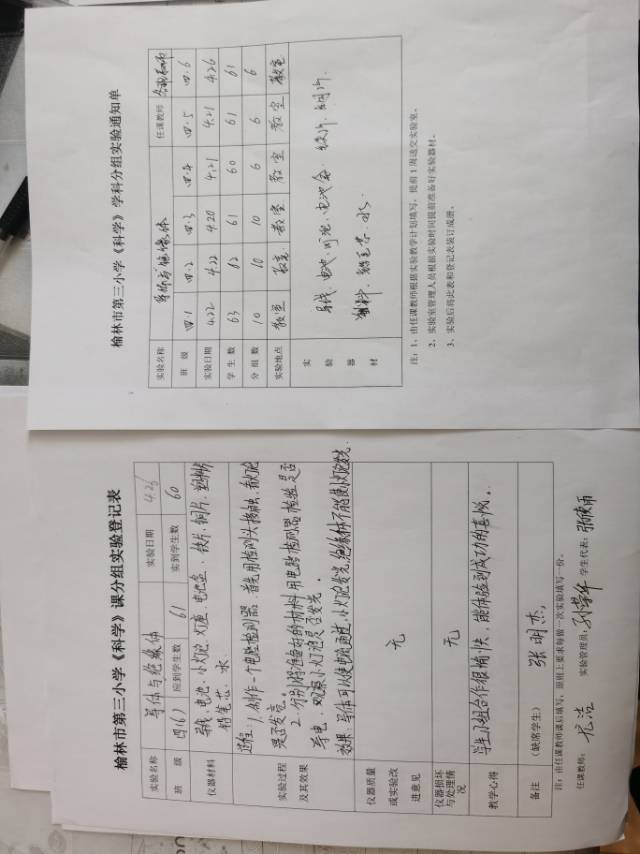 榆林市第三小学《科学》学科分组实验通知单
实验名称 导体与绝缘体 任课教师
班 级 四.1 四.2 四.3 四.4 四.5 四.6
实验日期 4.22 4.22 4.20 4.21 4.21 4.26
学 生 数 63 62 61 60 61 61
分 组 数 10 10 10 6 6 6
实验地点 教室 教室 教室 教室 教室 教室
实验器材
导线、电池、灯泡、电池盒、铁片、铜片、
塑料、铅笔芯、水、
注:1、由任课教师根据实验教学计划填写,提前1周送交实验室。
2、实验室管理人员根据实验时间提前准备好实验器材。
3、实验后将此表和登记表装订成册。
榆林市第三小学《科学》课分组实验登记表
实验名称 导体与绝缘体 实验日期 4.26
班 级 四(6) 应到学生数 61 实到学生数 60
仪器材料
导线、电池、小灯泡、灯座、电池盒、铁片、铜片、塑料
铅笔芯、水
实验过程及其效果
过程:1.制作一个电路检测器,首先用检测头接触,看灯泡
是否发亮。
2.分别将准备好的材料用电路检测器检验是否
导电,观察小灯泡是否发光。
效果:导体可以使电流通过,小灯泡发光,绝缘体不能使小灯泡发光。
仪器质量或实验改进意见 无
仪器损坏与处理情况 无
教学心得 学生小组合作很愉快,能体验到成功的喜悦。
备注 (缺席学生) 张明杰,
注:由任课教师课后填写,原则上要求每做一次实验填写一份。
任课教师: 尤浩 实验管理员: 学生代表: